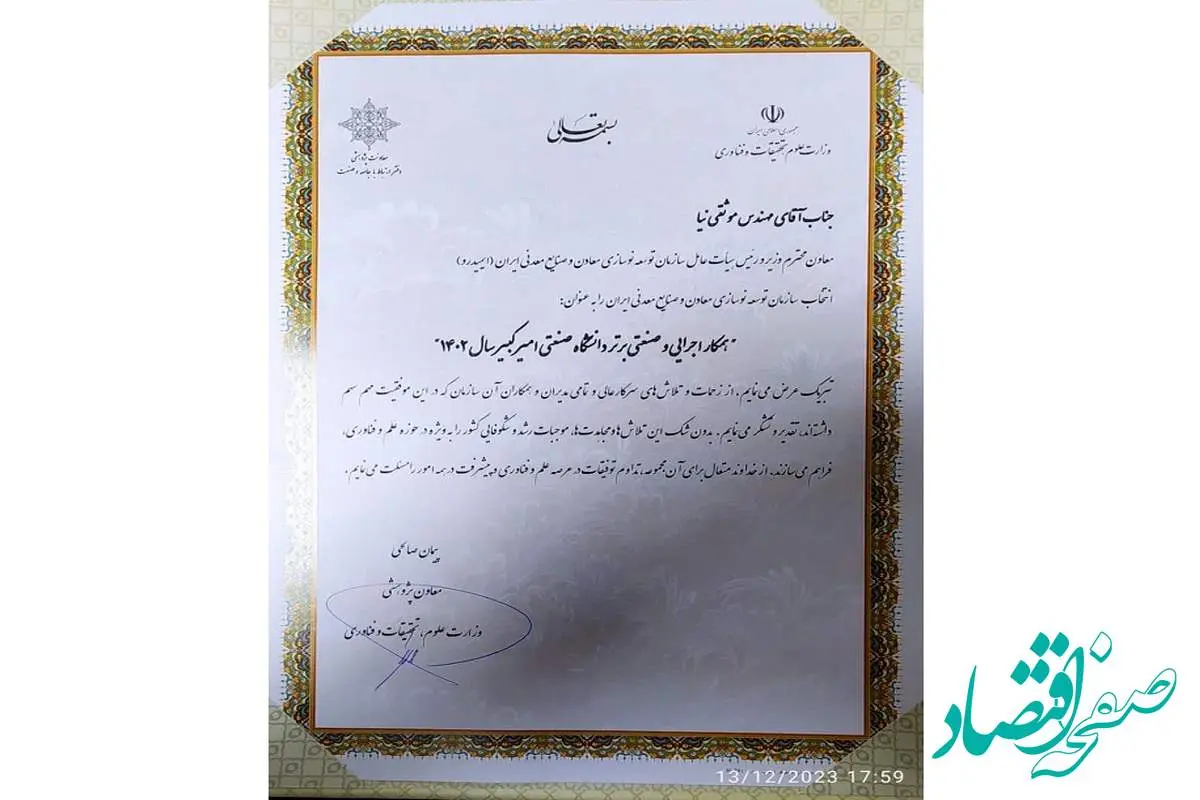 بسمه تعالی
جمهوری اسلامی ایران
وزارت علوم، تحقیقات و فناوری
معاونت پژوهشی
دفتر ارتباط با جامعه و صنعت
جناب آقای مهندس موثقی نیا
معاون محترم وزیر و رئیس هیأت عامل سازمان توسعه نوسازی معادن و صنایع معدنی ایران (ایمیدرو)
انتخاب سازمان توسعه نوسازی معادن و صنایع معدنی ایران را به عنوان:
"همکار اجرایی و صنعتی برتر دانشگاه صنعتی امیرکبیر سال ۱۴۰۲"
تبریک عرض می نمایم. از زحمات و تلاش های سرکار عالی و تمامی مدیران و همکاران آن سازمان که در این موفقیت مهم سهم
داشتند، تقدیر و تشکر می نمایم. بدون شک این تلاش ها و مجاهدت ها، موجبات رشد و شکوفایی کشور را به ویژه در حوزه علم و فناوری،
فراهم می سازند. از خداوند متعال برای آن مجموعه، تداوم توفیقات در عرصه علم و فناوری و پیشرفت در همه امور را مسئلت می نمایم.
پیمان صالحی
معاون پژوهشی
وزارت علوم، تحقیقات و فناوری
13/12/2023 17:59
صفحه اقتصاد